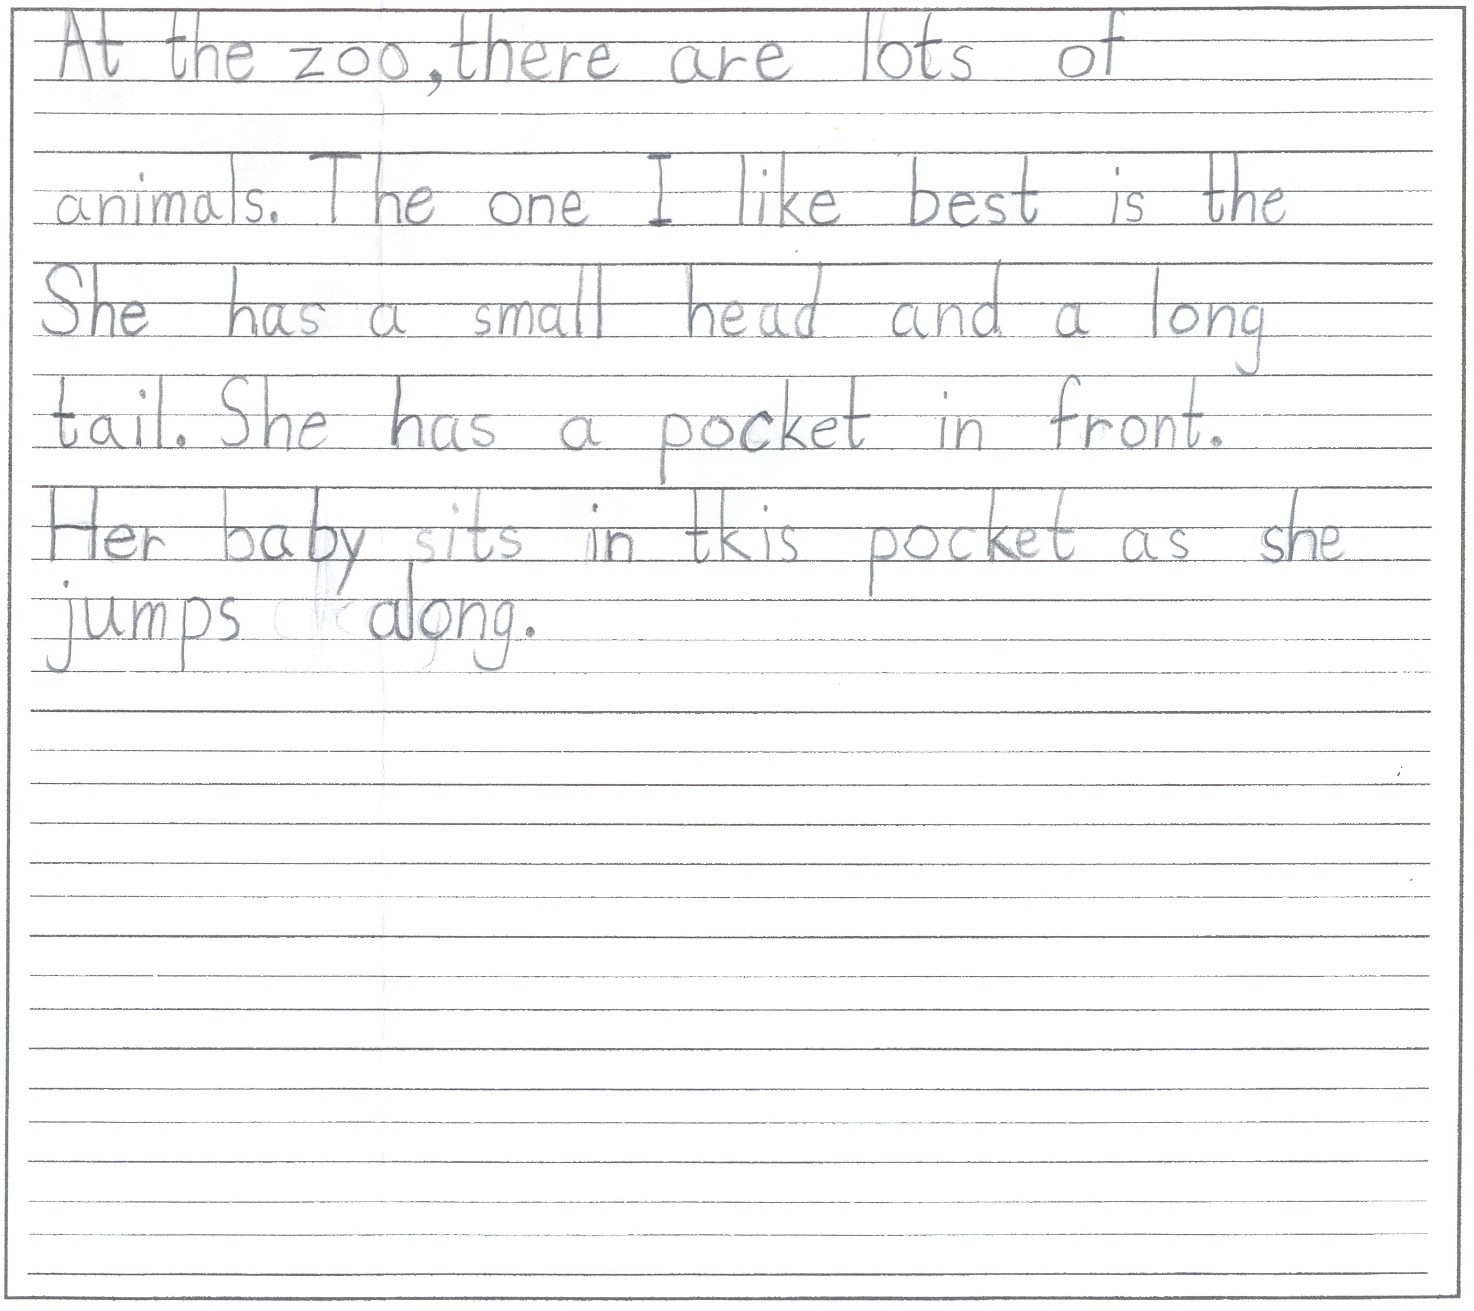 At the zoo, there are lots of
animals. The one I like best is the
She has a small head and a long
tail. She has a pocket in front.
Her baby sits in tkis pocket as she
jumps along.